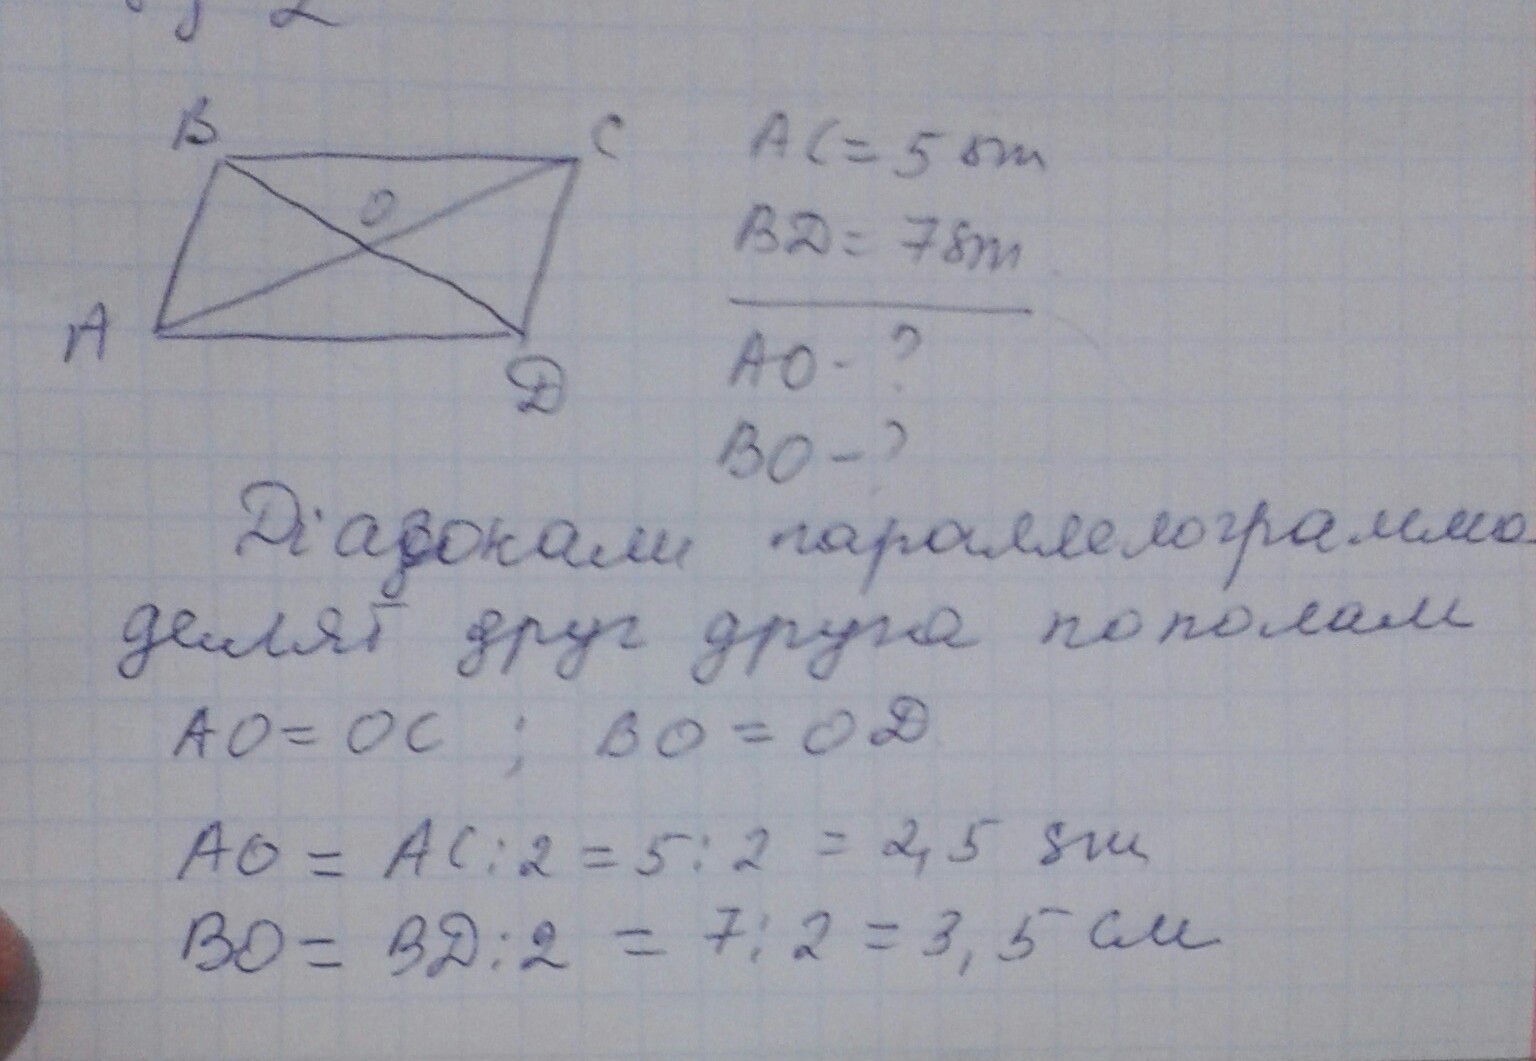 2
B
C
O
A
D
AC = 5 sm
BD = 7 sm
AO - ?
BO - ?
Діагонали параллелограмма
делят друг друга пополам
AO = OC ; BO = OD
AO = AC : 2 = 5 : 2 = 2,5 sm
BO = BD : 2 = 7 : 2 = 3,5 см